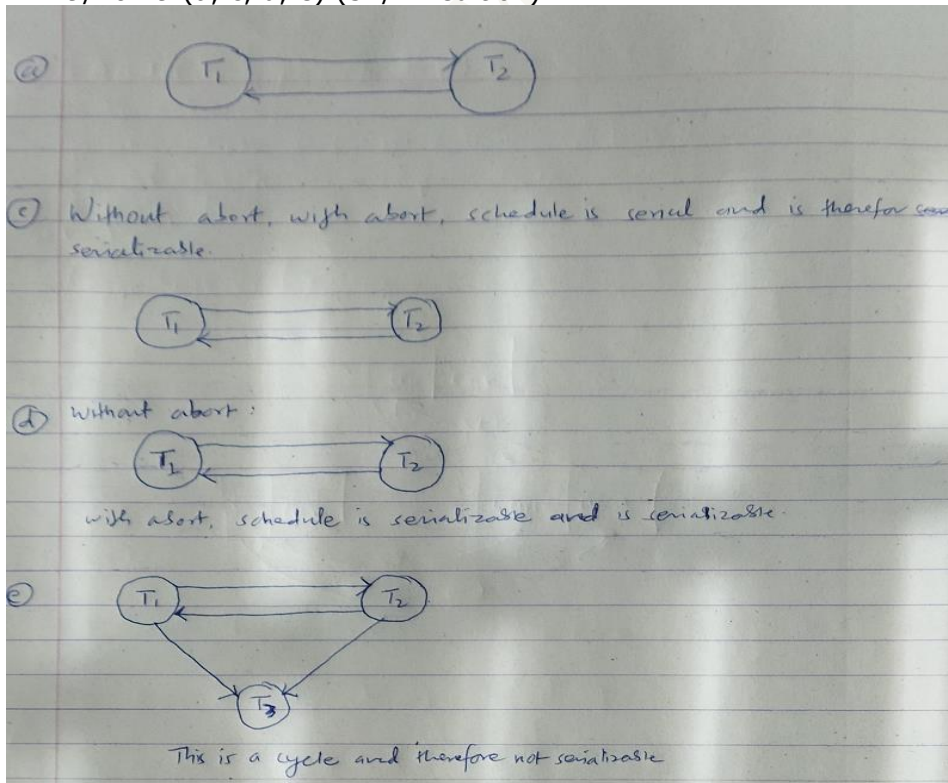 (a) T1 T2
(c) Without abort, with abort, schedule is serial and is therefor
serializable.
T1 T2
(d) Without abort :
T1 T2
with abort, schedule is serializable and is serializable.
(e) T1 T2
T3
This is a cycle and therefore not serializable